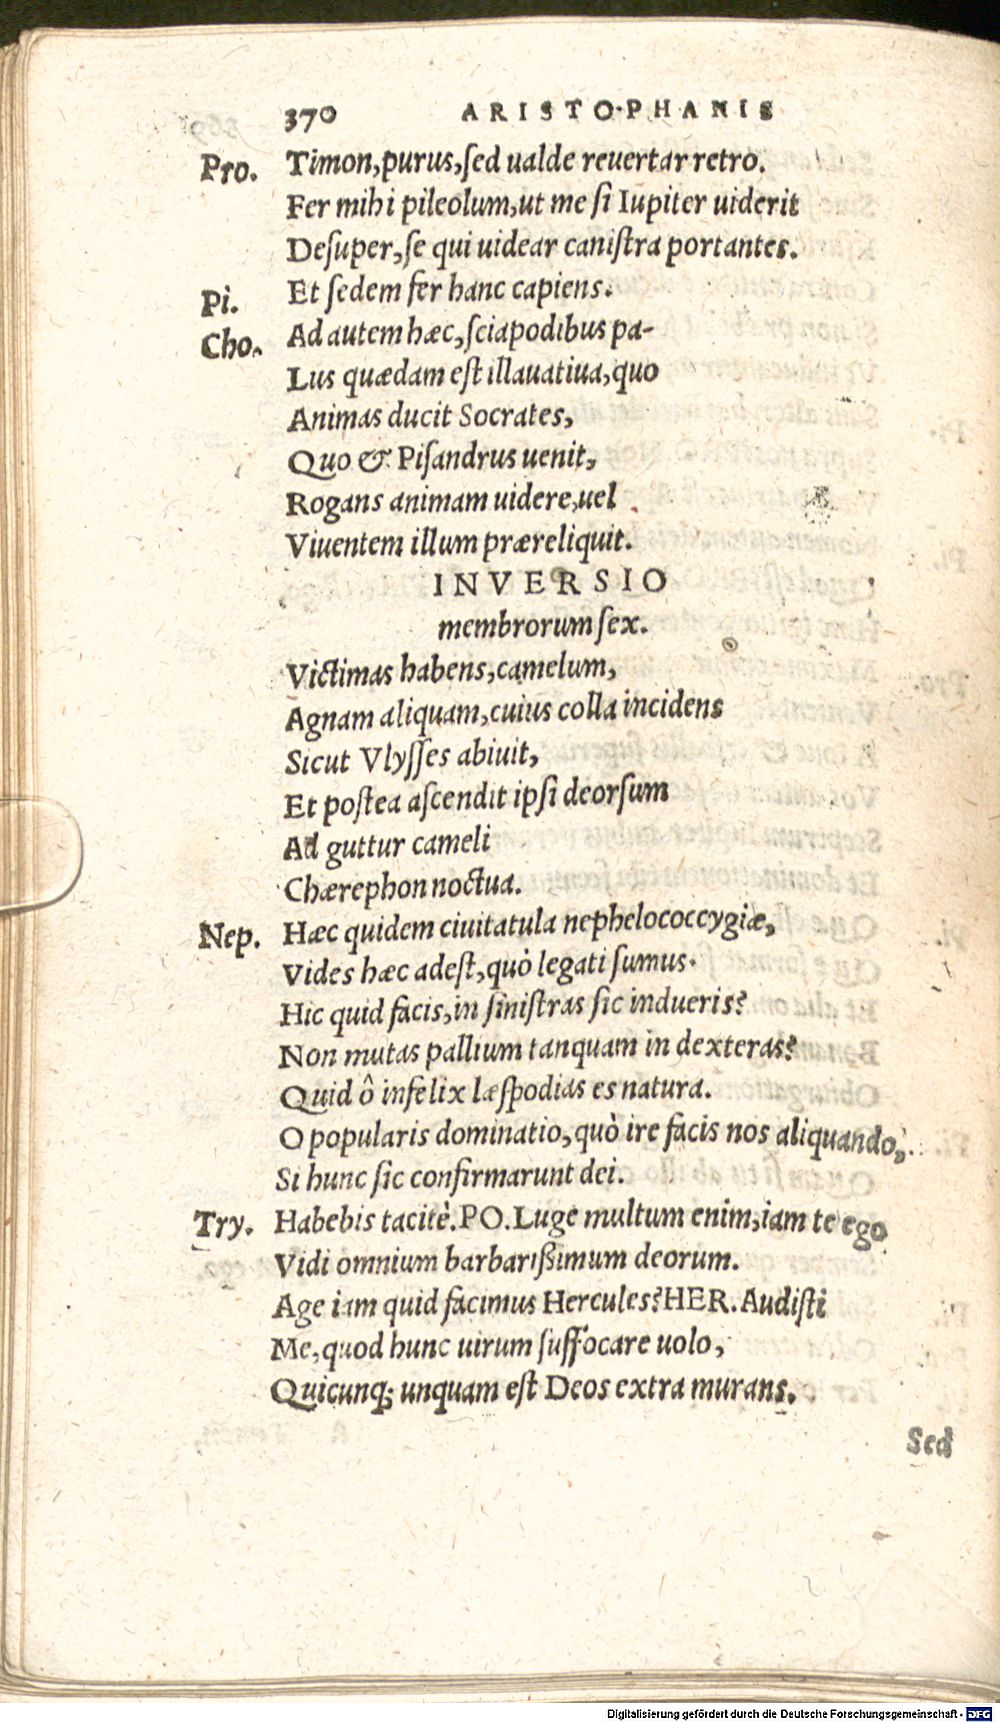 370 ARISTO·PHANIS
Pro. Timon,purus,ſed ualde reuertar retro.
Fer mihi pileolum,ut me ſi Iupiter uiderit
Deſuper,ſe qui uidear caniſtra portantes.
Pi. Et ſedem fer hanc capiens.
Cho. Ad autem hæc,ſciapodibus pa-
Lus quædam eſt illauatiua,quo
Animas ducit Socrates,
Quo & Piſandrus uenit,
Rogans animam uidere,uel
Viuentem illum præreliquit.
INVERSIO
membrorum ſex.
Victimas habens,camelum,
Agnam aliquam,cuius colla incidens
Sicut Vlyſſes abiuit,
Et poſtea aſcendit ipſi deorſum
Ad guttur cameli
Chærephon noctua.
Nep. Hæc quidem ciuitatula nephelococcygiæ,
Vides hæc adeſt,quò legati ſumus·
Hic quid facis,in ſiniſtras ſic indueris?
Non mutas pallium tanquam in dexteras?
Quid ô infelix læſpodias es natura.
O popularis dominatio,quò ire facis nos aliquando,
Si hunc ſic confirmarunt dei.
Try. Habebis tacitè.PO.Luge multum enim,iam te ego
Vidi omnium barbarißimum deorum.
Age iam quid facimus Hercules?HER.Audiſti
Me,quod hunc uirum ſuffocare uolo,
Quicunq; unquam eſt Deos extra murans.
Sed
Digitalisierung gefördert durch die Deutsche Forschungsgemeinschaft - DFG